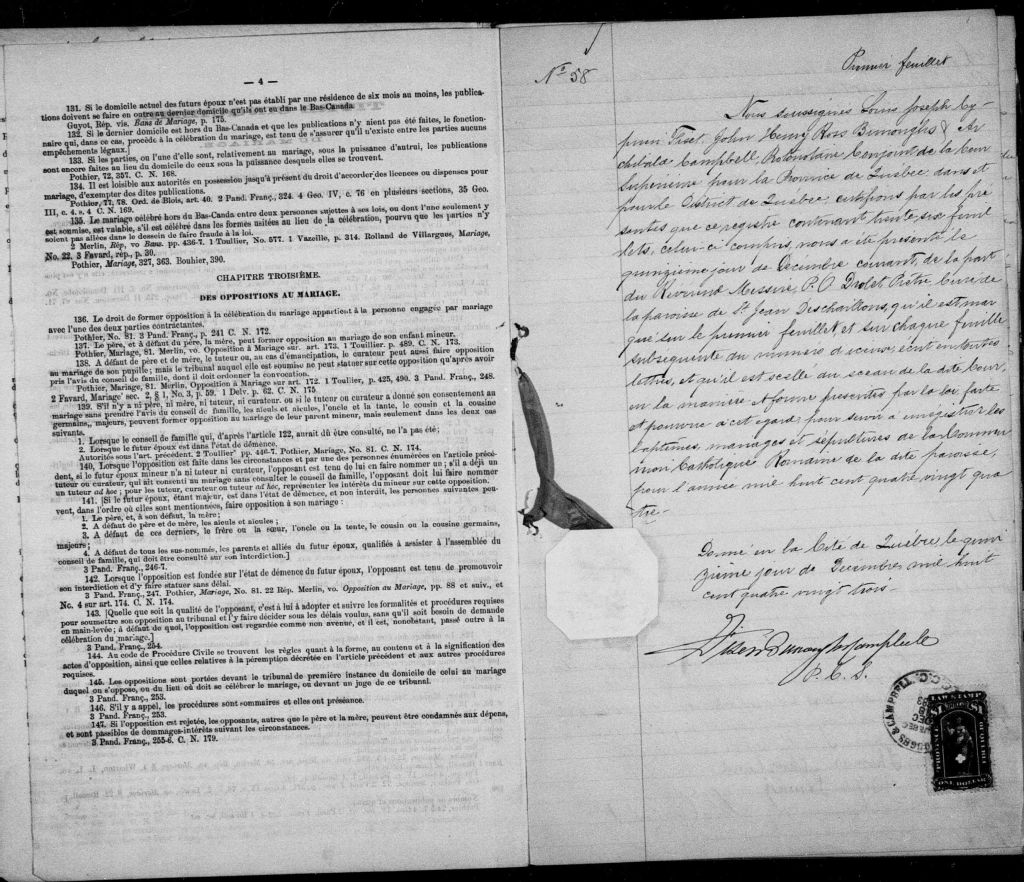 — 4 —
131. Si le domicile actuel des futurs époux n'est pas établi par une résidence de six mois au moins, les publica-
tions doivent se faire en outre au dernier domicile qu'ils ont eu dans le Bas-Canada.
Guyot, Rép. vis. Bans de Mariage, p. 175.
132. Si le dernier domicile est hors du Bas-Canada et que les publications n'y aient pas été faites, le fonction-
naire qui, dans ce cas, procède à la célébration du mariage, est tenu de s'assurer qu'il n'existe entre les parties aucuns
empêchements légaux.]
133. Si les parties, ou l'une d'elle sont, relativement au mariage, sous la puissance d'autrui, les publications
sont encore faites au lieu du domicile de ceux sous la puissance desquels elles se trouvent.
Pothier, 72, 357. C. N. 168.
134. Il est loisible aux autorités en possession jusqu'à présent du droit d'accorder des licences ou dispenses pour
mariage, d'exempter des dites publications.
Pothier, 77, 78. Ord. de Blois, art. 40. 2 Pand. Franç., 324. 4 Geo. IV, c. 76 en plusieurs sections, 35 Geo.
III, c. 4. s. 4 C. N. 169.
135. Le mariage célébré hors du Bas-Canda entre deux personnes sujettes à ses lois, ou dont l'une seulement y
est soumise, est valable, s'il est célébré dans les formes usitées au lieu de la célébration, pourvu que les parties n'y
soient pas allées dans le dessein de faire fraude à la loi.
2 Merlin, Rép, vo Bans. pp. 436-7. 1 Toullier, No. 577. 1 Vazeille, p. 314. Rolland de Villargues, Mariage,
No. 22. 3 Favard, rép., p. 30.
Pothier, Mariage, 327, 363. Bouhier, 390.
CHAPITRE TROISIÈME.
DES OPPOSITIONS AU MARIAGE.
136. Le droit de former opposition à la célébration du mariage appartient à la personne engagée par mariage
avec l'une des deux parties contractantes.
Pothier, No. 81. 3 Pand. Franç., p. 241 C. N. 172.
137. Le père, et à défaut du père, la mère, peut former opposition au mariage de son enfant mineur.
Pothier, Mariage, 81. Merlin, vo. Opposition à Mariage sur. art. 173. 1 Touillier. p. 489. C. N. 173.
138. A défaut de père et de mère, le tuteur ou, au cas d'émancipation, le curateur peut aussi faire opposition
au mariage de son pupille; mais le tribunal auquel elle est soumise ne peut statuer sur cette opposition qu'après avoir
pris l'avis du conseil de famille, dont il doit ordonner la convocation.
Pothier, Mariage, 81. Merlin, Opposition à Mariage sur art. 172. 1 Toullier, p. 425, 490. 3 Pand. Franç., 248.
2 Favard, Mariage' sec. 2, § 1, No. 3, p. 59. 1 Delv. p. 62. C. N. 175.
139. S'il n'y a ni père, ni mère, ni tuteur, ni curateur, ou si le tuteur ou curateur a donné son consentement au
mariage sans prendre l'avis du conseil de famille, les aïeuls et aïeules, l'oncle et la tante, le cousin et la cousine
germains, majeurs, peuvent former opposition au mariage de leur parent mineur, mais seulement dans les deux cas
suivants.
1. Lorsque le conseil de famille qui, d'après l'article 122, aurait dû être consulté, ne l'a pas été;
2. Lorsque le futur époux est dans l'état de démence.
Autorités sous l'art. précédent. 2 Toullier' pp. 440-7. Pothier, Mariage, No. 81. C. N. 174.
140. Lorsque l'opposition est faite dans les circonstances et par une des personnes énumérées en l'article précé-
dent, si le futur époux mineur n'a ni tuteur ni curateur, l'opposant est tenu de lui en faire nommer un; s'il a déjà un
tuteur ou curateur, qui ait consenti au mariage sans consulter le conseil de famille, l'opposant doit lui faire nommer
un tuteur ad hoc; pour les tuteur, curateur ou tuteur ad hoc, représenter les intérêts du mineur sur cette opposition.
141. [Si le futur époux, étant majeur, est dans l'état de démence, et non interdit, les personnes suivantes peu-
vent, dans l'ordre où elles sont mentionnées, faire opposition à son mariage:
1. Le père, et, à son défaut, la mère;
2. A défaut de père et de mère, les aïeuls et aïeules;
3. A défaut de ces derniers, le frère ou la sœur, l'oncle ou la tente, le cousin ou la cousine germains,
majeurs;
4. A défaut de tous les sus-nommés, les parents et alliés du futur époux, qualifiés à assister à l'assemblée du
conseil de famille, qui doit être consulté sur son interdiction.]
3 Pand. Franç., 246-7.
142. Lorsque l'opposition est fondée sur l'état de démence du futur époux, l'opposant est tenu de promouvoir
son interdiction et d'y faire statuer sans délai.
3 Pand. Franç., 247. Pothier, Mariage, No. 81. 22 Rép. Merlin, vo. Opposition au Mariage, pp. 88 et suiv., et
No. 4 sur art. 174. C. N. 174.
143. [Quelle que soit la qualité de l'opposant, c'est à lui à adopter et suivre les formalités et procédures requises
pour soumettre son opposition au tribunal et l'y faire décider sous les délais voulus, sans qu'il soit besoin de demande
en main-levée; à défaut de quoi, l'opposition est regardée comme non avenue, et il est, nonobstant, passé outre à la
célébration du mariage.]
3 Pand. Franç., 254.
144. Au code de Procédure Civile se trouvent les règles quant à la forme, au contenu et à la signification des
actes d'opposition, ainsi que celles relatives à la péremption décrétée en l'article précédent et aux autres procédures
requises.
145. Les oppositions sont portées devant le tribunal de première instance du domicile de celui au mariage
duquel on s'oppose, ou du lieu où doit se célébrer le mariage, ou devant un juge de ce tribunal.
3 Pand. Franç., 253.
146. S'il y a appel, les procédures sont sommaires et elles ont préséance.
3 Pand. Franç., 253.
147. Si l'opposition est rejetée, les opposants, autres que le père et la mère, peuvent être condamnés aux dépens,
et sont passibles de dommages-intérêts suivant les circonstances.
3 Pand. Franç., 255-6. C. N. 179.
No 58
Premier feuillet
Nous soussignés Louis Joseph Cy-
prien Fiset, John Henry Ross Burroughs & Ar
chibald Campbell, Protonotaire Conjoint de la Cour
Supérieure pour la Province de Québec, dans et
pour le District de Québec, certifions par les pré
sentes que ce registre contenant trente-six feuil
lets, celui-ci compris, nous a été présenté le
quinzième jour de Décembre courant, de la part
du Révérend Messire, P. O. Drolet Prêtre Curé de
la paroisse de St Jean Deschaillons, qu'il est mar
qué sur le premier feuillet et sur chaque feuille
subséquente du numéro d'iceux, écrit en toutes
lettres, et qu'il est scellé du sceau de la dite Cour,
en la manière & forme prescrites par la loi faite
et pourvue à cet égard, pour servir à enregistrer les
baptêmes, mariages et sépultures de la Commu
nion Catholique Romaine de la dite paroisse,
pour l'année mil huit cent quatre vingt qua
tre.-
Donné en la Cité de Québec le quin
zième jour de Décembre mil huit
cent quatre vingt trois.
Fiset Burroughs Campbell
P. C. S.
& CAMPBELL
LAW STAMP
$1 $1
ONE DOLLAR